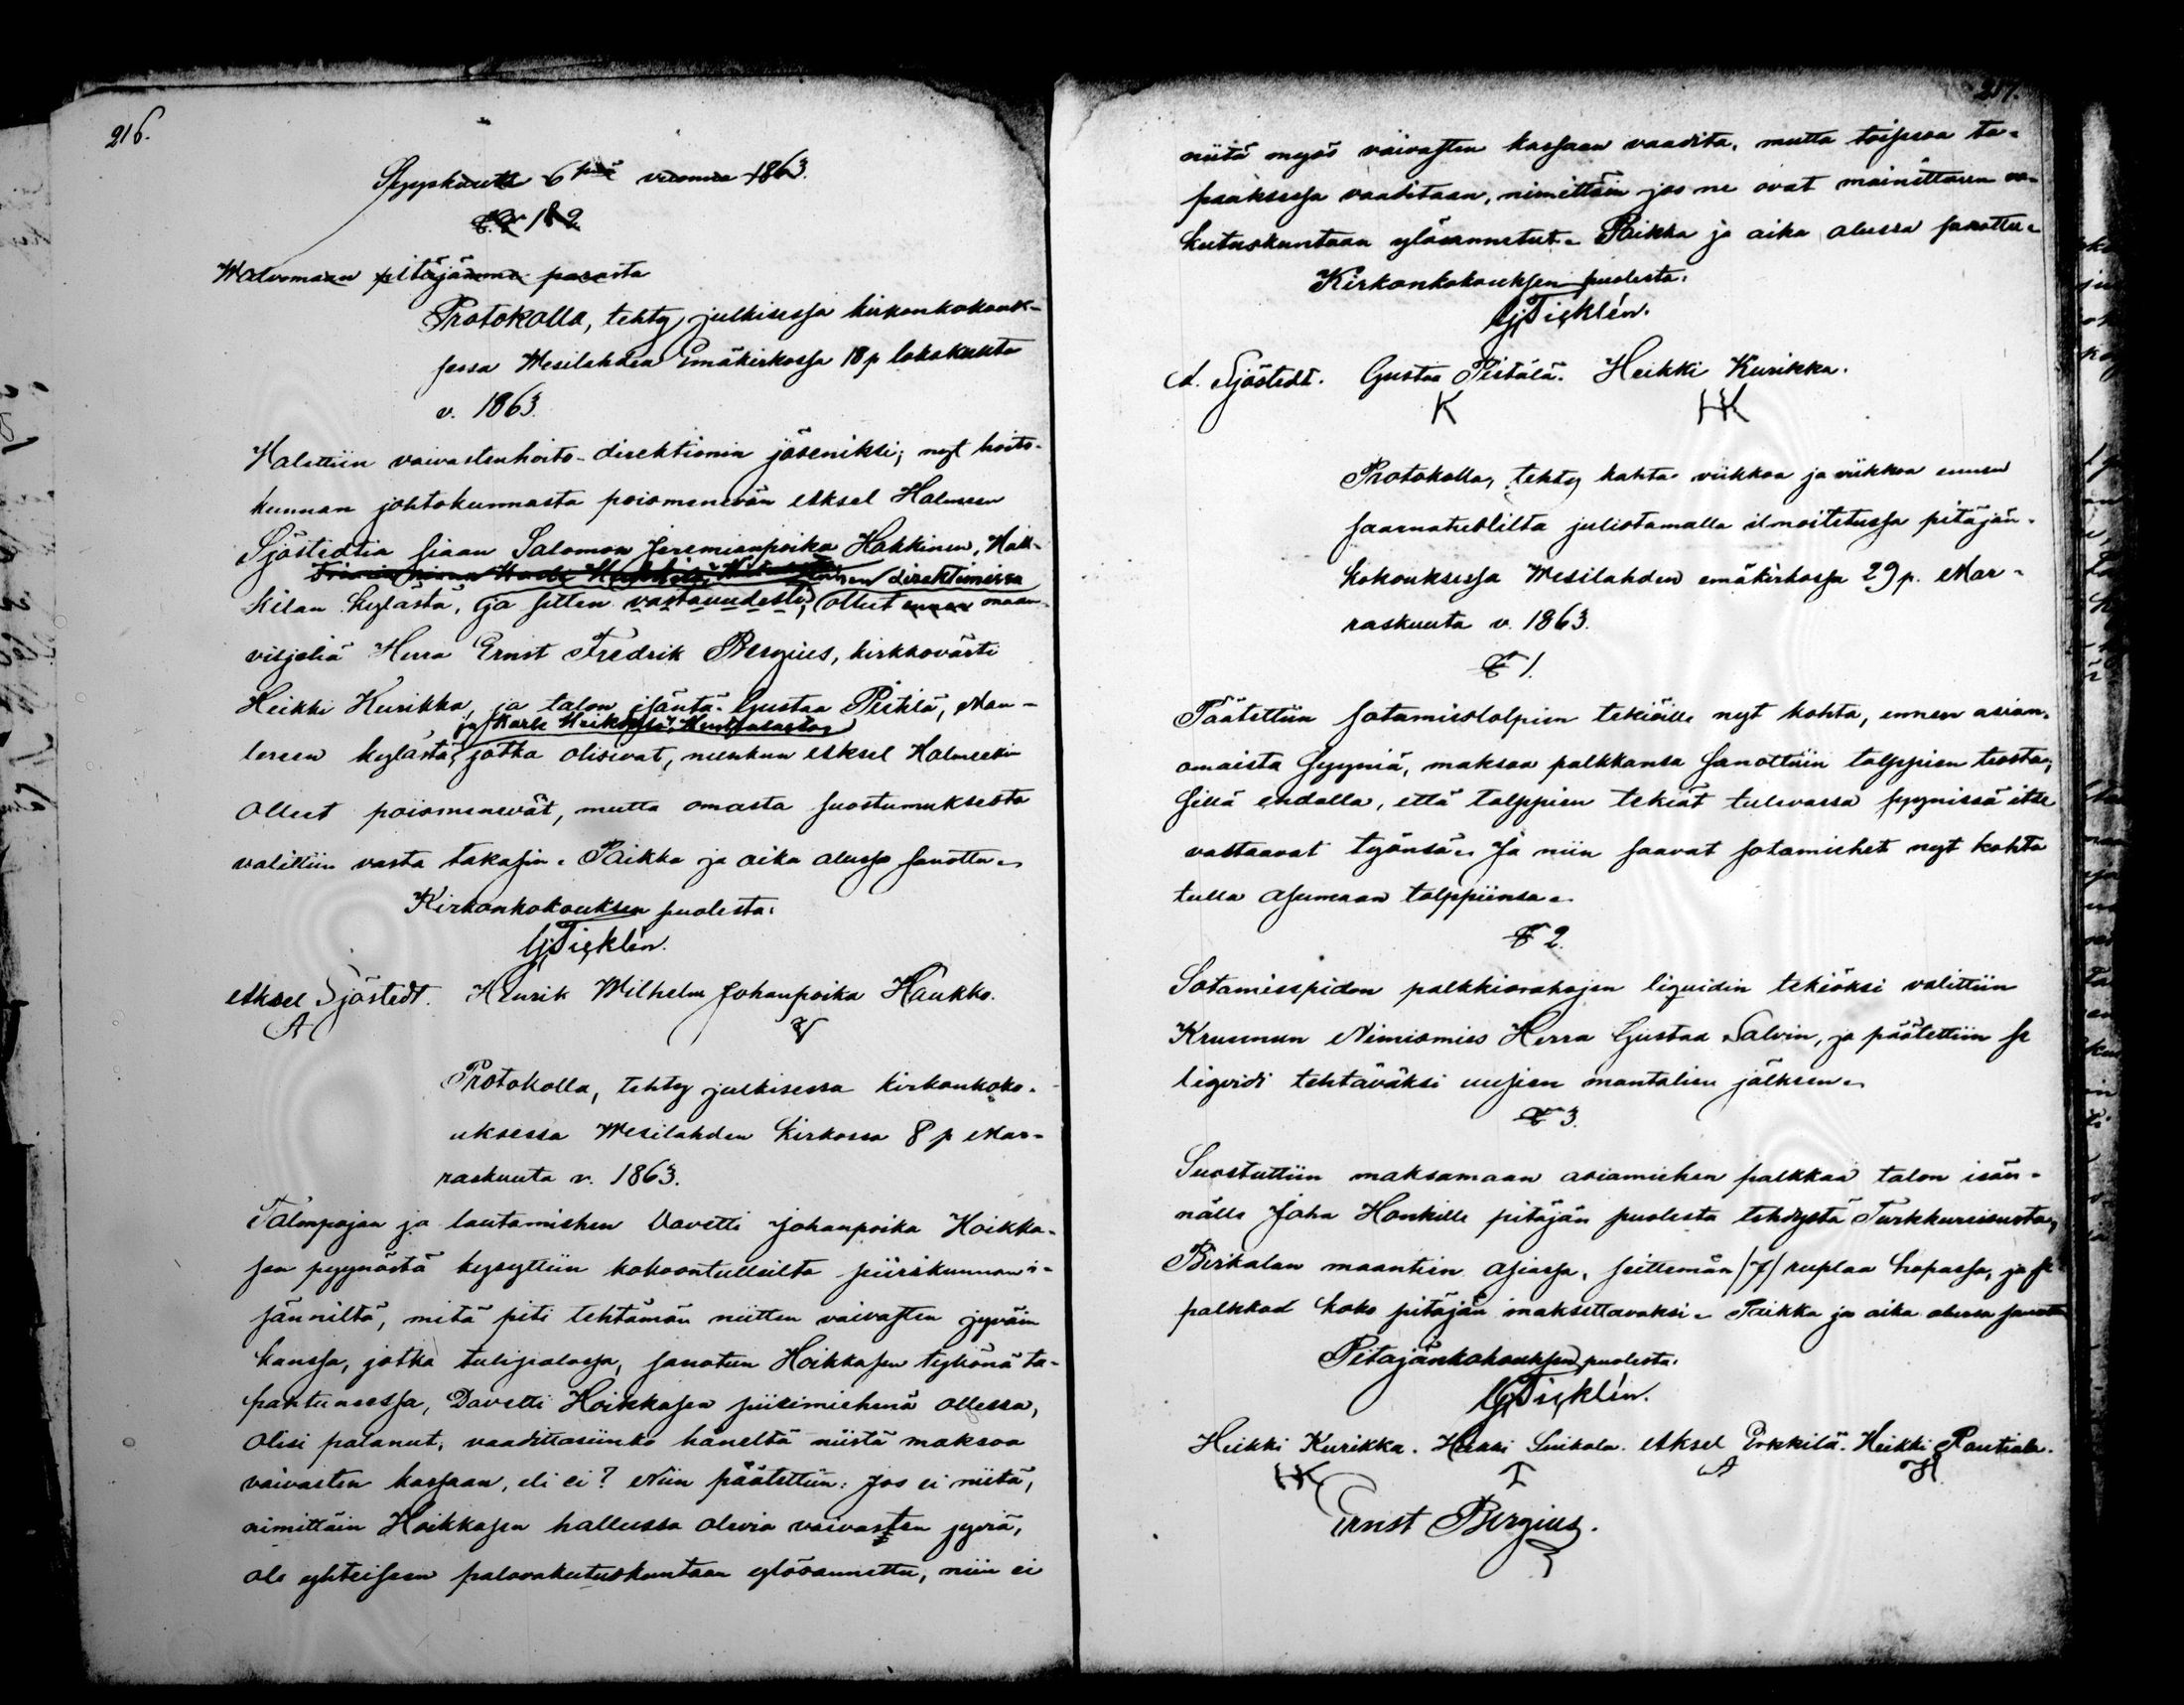 216.
Syyskuuta 6 pnä vuonna 1863.
§§ 1 & 2
Watvomaan pitäjämme parasta
Protokolla, tehty julkisessa kirkonkokouk-
sessa Wesilahden Emäkirkossa 18 p lokakuuta
v. 1863.
Walittiin vaivastenhoito-direktionin jäseniksi; nyt hoito-
kunnan johtokunnasta poismenevän Aksel Halmeen
Sjöstedtin siaan Salomon Jeremianpoika Hakkinen, Hak-
direktionissa
kilan kylästä, ja sitten vastauudesti, ollut ennen maan-
viljeliä Herra Ernst Fredrik Bergius, kirkkovärti
Heikki Kurikka, ja talon isäntä Gustaa Pistilä,
ja Karle Heikkilä,
kylästä, jotka olisivat, niinkun Aksel Halmeekin
ollut poismenevät, mutta omasta suostumuksesta
valittiin vasta takasin. Paikka ja aika alussa sanottu.
Kirkonkokouksen puolesta:
Gj Ticklén.
Aksel Sjöstedt. Henrik Wilhelm Johanpoika Haukko.
A
Protokolla, tehty julkisessa kirkonkoko-
uksessa Wesilahden kirkossa 8 p Mar-
raskuuta v. 1863.
Talonpojan ja lautamiehen Davetti Johanpoika Hoikka-
sen pyynöstä kysyttiin kokoontulleilta piiriskunnan i-
sänniltä, mitä piti tehtämän niitten vaivasten jyväin
kanssa, jotka tulipalossa, sanotun Hoikkasen tykönä ta-
pahtuneessa, Davetti Hoikkasen piirimiehenä ollessa,
olisi palanut, vaadittasiinko häneltä niistä maksoa
vaivasten kassaan, eli ei? Niin päätettiin: Jos ei niitä,
nimittäin Hoikkasen hallussa olevia vaivasten jyviä,
ole yhteiseen palovakutuskuntaan ylösannettu, niin ei
217.
niitä myös vaivasten kassaan vaadita, mutta toisessa ta-
pauksessa vaaditaan, nimittäin jos ne ovat mainittuun va-
kutuskuntaan ylösannetut. Paikka ja aika alussa sanottu.
Kirkonkokouksen puolesta:
Gj Ticklén.
A. Sjöstedt. Gustaa Pistälä. Heikki Kurikka.
K HK
Protokolla, tehty kahta viikkoa ja viikkoa ennen
saarnatuolilta julistamalla ilmoitetussa pitäjän-
kokouksessa Wesilahden emäkirkossa 29 p. Mar-
raskuuta v. 1863.
§ 1.
Päätettiin sotamiestolpien tekiöille nyt kohta, ennen asian-
omaista syyniä, maksaa palkkansa sanottuin tolppien teosta,
sillä ehdolla, että tolppien tekiät tulevassa syynissä itse
vastaavat työnsä. Ja niin saavat sotamiehet nyt kohta
tulla asumaan tolppiinsa.
§ 2.
Sotamiespidon palkkiorahojen liquidin tekiöksi valittiin
Kruunun Nimismies Herra Gustaa Salvin, ja päätettiin se
liqvidi tehtäväksi uusien mantalien jälkeen.
§ 3.
Suostuttiin maksamaan asiamiehen palkkaa talon isän-
nälle Juha Honkille pitäjän puolesta tehdystä Turkkureisusta,
Birkalan maantien asiassa, seittemän /7/ ruplaa hopassa, ja se
palkkad koko pitäjän maksettavaksi. Paikka ja aika alussa sanottu
Pitäjänkokouksen puolesta:
Gj Ticklén.
Heikki Kurikka. Heikki Suikala. Aksel Erkkilä. Heikki Rautiala.
HK I A H.
Ernst Bergius.